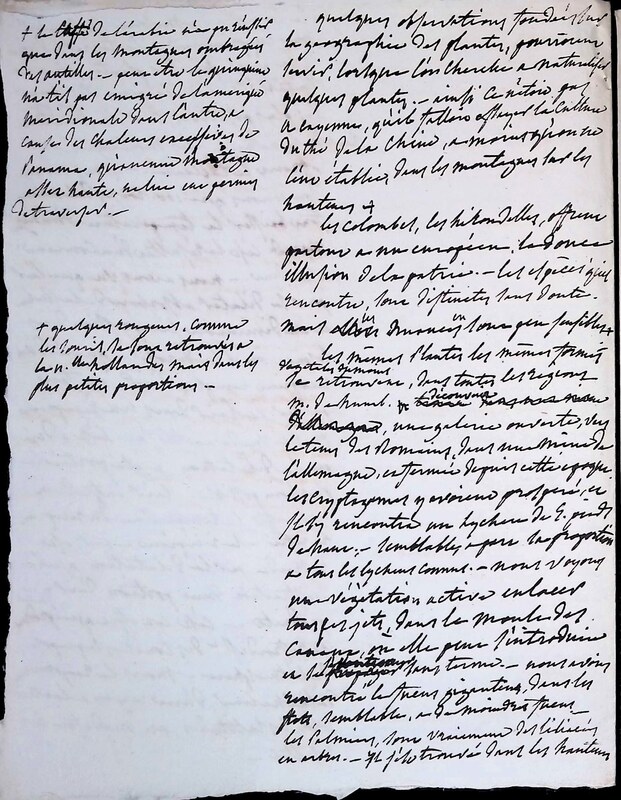 + le Caffé de l'arabie n'a pu réussir
que dans les montagnes ombragées
des antilles. — peut etre le quinquina
n'a t'il pas emigré de l'amerique
meridionale dans l'autre, a
cause des chaleurs excessives de
Panama, qu'aucune montagne
assez haute, ne lui eut permis
de traverser. —
+ quelques rongeurs, comme
les souris, se sont retrouvés a
la n. hollande, mais dans les
plus petites proportions —
quelques observations fondées sur
la geographie des plantes, pourroient
servir, lorsque l'on cherche a naturaliser
quelques plantes. — ainsi ce n'etoit pas
a cayenne, qu'il falloit essayer la culture
du thé de la Chine, a moins qu'on ne
l'eut établie, dans les montagnes sur les
hauteurs +
les colombes, les hirondelles, offrent
partout a un européen la douce
illusion de la patrie. — les especes qu'il
rencontre, sont distinctes sans doute.
mais les nuances en sont peu sensibles +
les mêmes plantes les mêmes formes
vegetales du moins
se retrouvent, dans toutes les regions
m. de humb. decouvrit
une galerie ouverte, vers
le tems des Romains, dans une mine de
l'allemagne, et fermée depuis cette epoque.
les cryptogames y avoient prosperé, et
il y rencontra un lychen de 6. pieds
de haut, — semblable a part la proportion
a tous les lychens connus. — nous voyons
une végétation active enlacer
tous ses jets, dans le moule des
Canaux, où elle peut s'introduire
et se sans terme. — nous avons
rencontré le fucus giganteus, dans les
flots, semblable, a de moindres fucus —
les Palmiers, sont vraiement des liliacées
en arbres. — Il s'est trouvé dans les hauteurs